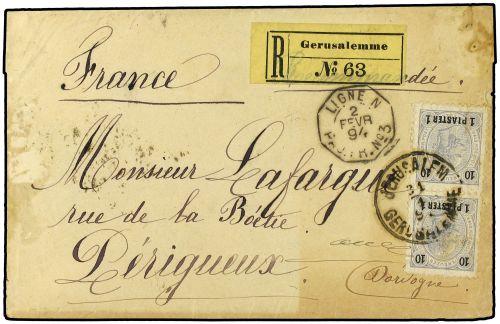 R Gerusalemme
№ 63
France
LIGNE N
2
FEVR
94
PAQ. FR. No3
1 PIASTER 1
10 10
JERUSALEM
GERUSALEMME
1 PIASTER 1
10 10
Monsieur Lafargue
rue de la Boëtie
Périgueux
Dordogne